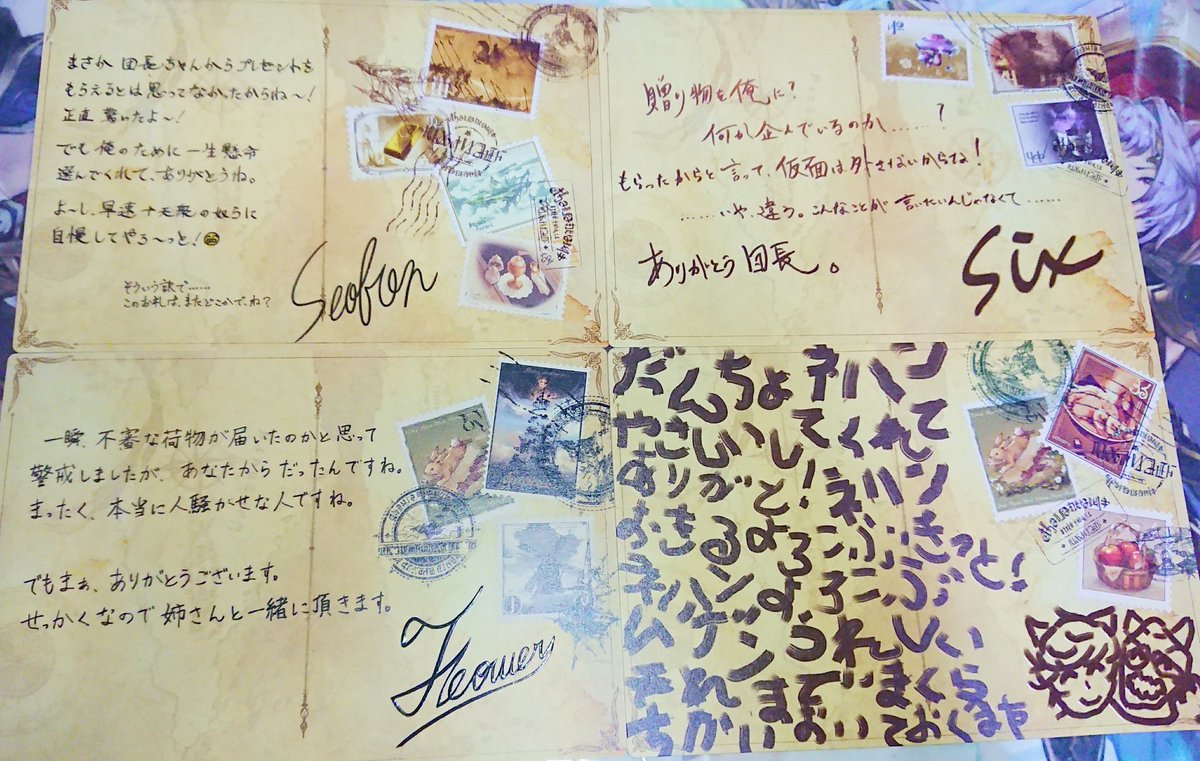 まさか団長ちゃんからプレゼントを
もらえるとは思ってなかったからね〜!
正直驚いたよ〜!
でも俺のために一生懸命
選んでくれて、ありがとうね。
よーし、早速十天衆の奴らに
自慢してやろ〜っと!
そういう訳で……
このお礼は、またどこかで、ね?
Seofon
贈り物を俺に?
何か企んでいるのか……?
もらったからと言って、仮面は外さないからな!
……いや、違う。こんなことが言いたいんじゃなくて……
ありがとう団長。
Six
一瞬、不審な荷物が届いたのかと思って
警戒しましたが、あなたからだったんですね。
まったく、本当に人騒がせな人ですね。
でもまぁ、ありがとうございます。
せっかくなので姉さんと一緒に頂きます。
Feower
だんちょ ネハン
やさしいて くれて
ありがと! ネハン
おきるよろこぶ きっと!
ネハン よろこぶ
ムゲン うれしい
それまで まくら
ちかい おいておくまや